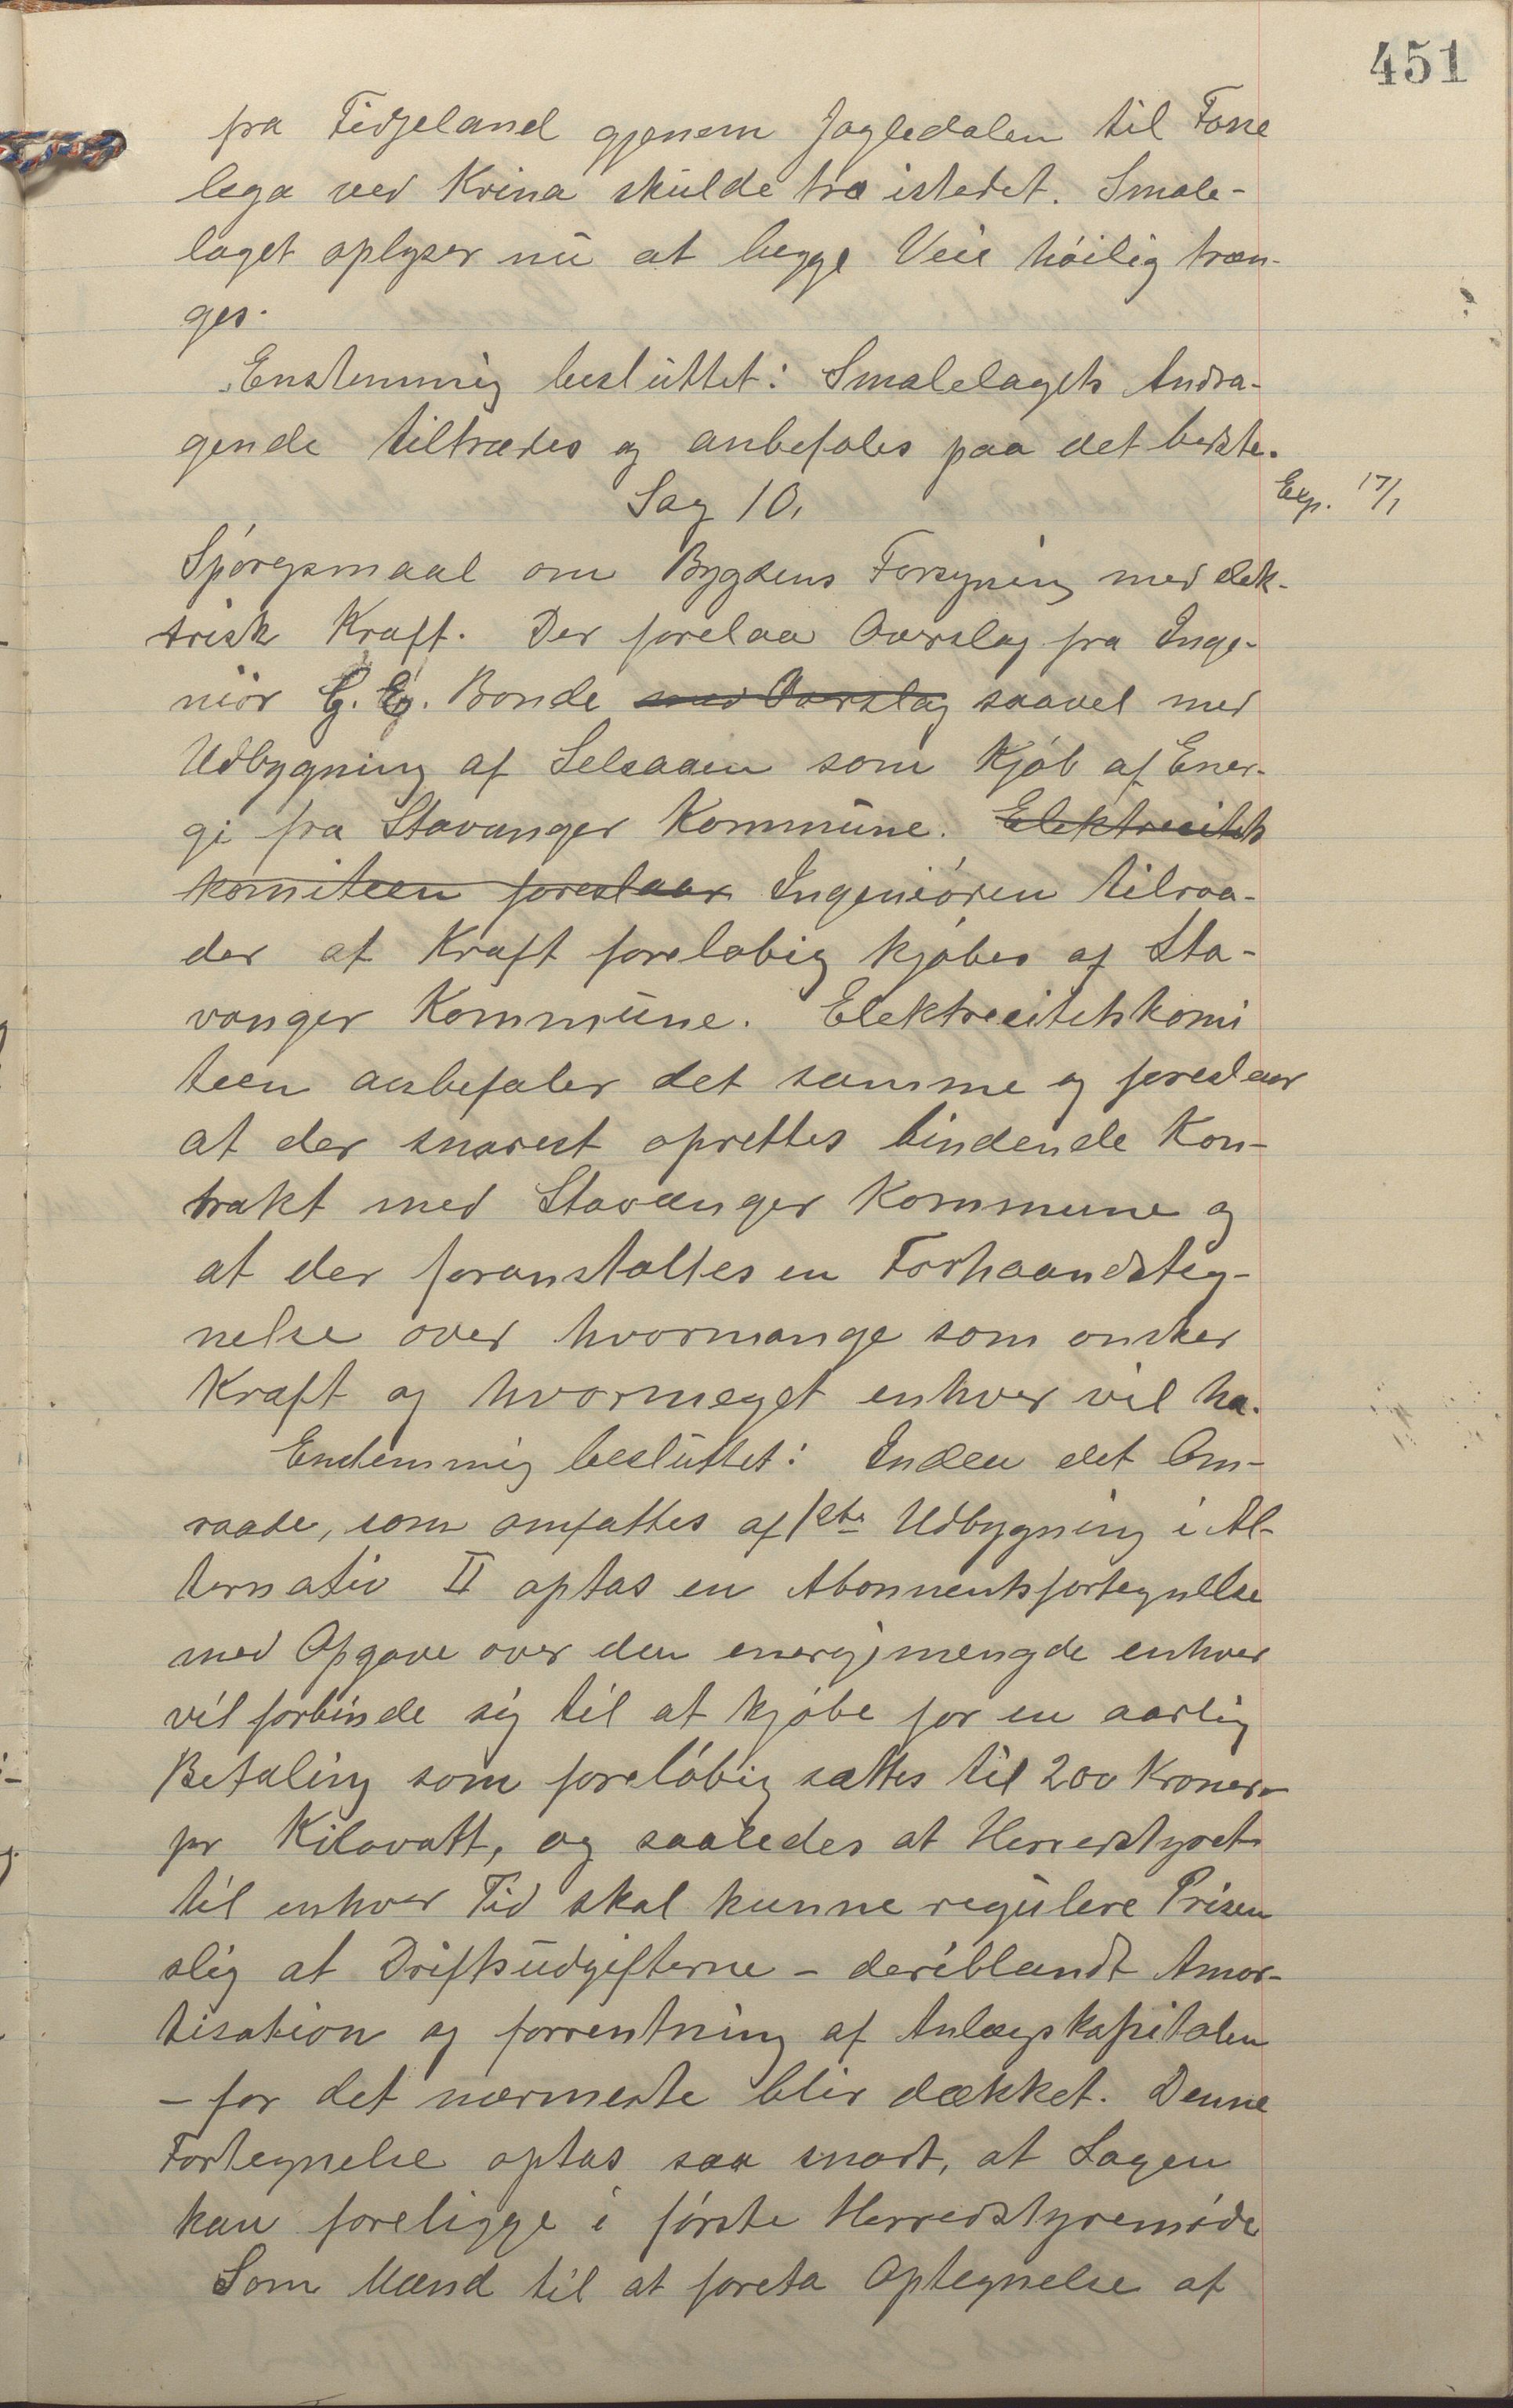 451
fra Fidjeland gjenem Jogledalen til Fosse
lega ved Krina skulde tra istedet. Smale-
laget oplyser nu at begge Veie höilig træn-
ges.
Enstemmig besluttet: Smalelagets Andra-
gende tiltrædes og anbefales paa det bedste.
Sag 10.
Exp. 17/1
Spörgsmaal om Bygdens Forsyning med elek-
trisk Kraft. Der forelaa Overslag fra Inge-
niör G. Eg. Bonde med Overslag saavel med
Udbygning af Selsaaen som Kjöb af Ener-
gi fra Stavanger Kommune. Elektrecitets
komiteen foreslaar Ingeniören tilraa-
der at Kraft forelöbig kjöbes af Sta-
vanger Kommune. Elektrecitetskomi
teen anbefaler det samme og foreslaar
at der snarest oprettes bindende Kon-
trakt med Stavanger Kommune og
at der foranstaltes en Forhaandsteg-
nelse over hvormange som önsker
Kraft og hvormeget enhver vil ha.
Enstemmig besluttet: Inden det Om-
raade, som omfattes af 1ste Udbygning i Al-
ternativ II optas en Abonnentsfortegnelse
med Opgave over den energimengde enhver
vil forbinde sig til at kjöbe for en aarlig
Betaling som forelöbig sættes til 200 Kroner
pr Kilovatt, og saaledes at Herredstyret
til enhver Tid skal kunne regulere Prisen
slig at Driftsudgifterne - deriblandt Amor-
tisation og forrentning af Anlægskapitalen
- for det nærmeste blir dækket. Denne
Fortegnelse optas saa snart, at Sagen
kan foreligge i förste Herredstyremöde
Som Mænd til at foreta Optegnelse af